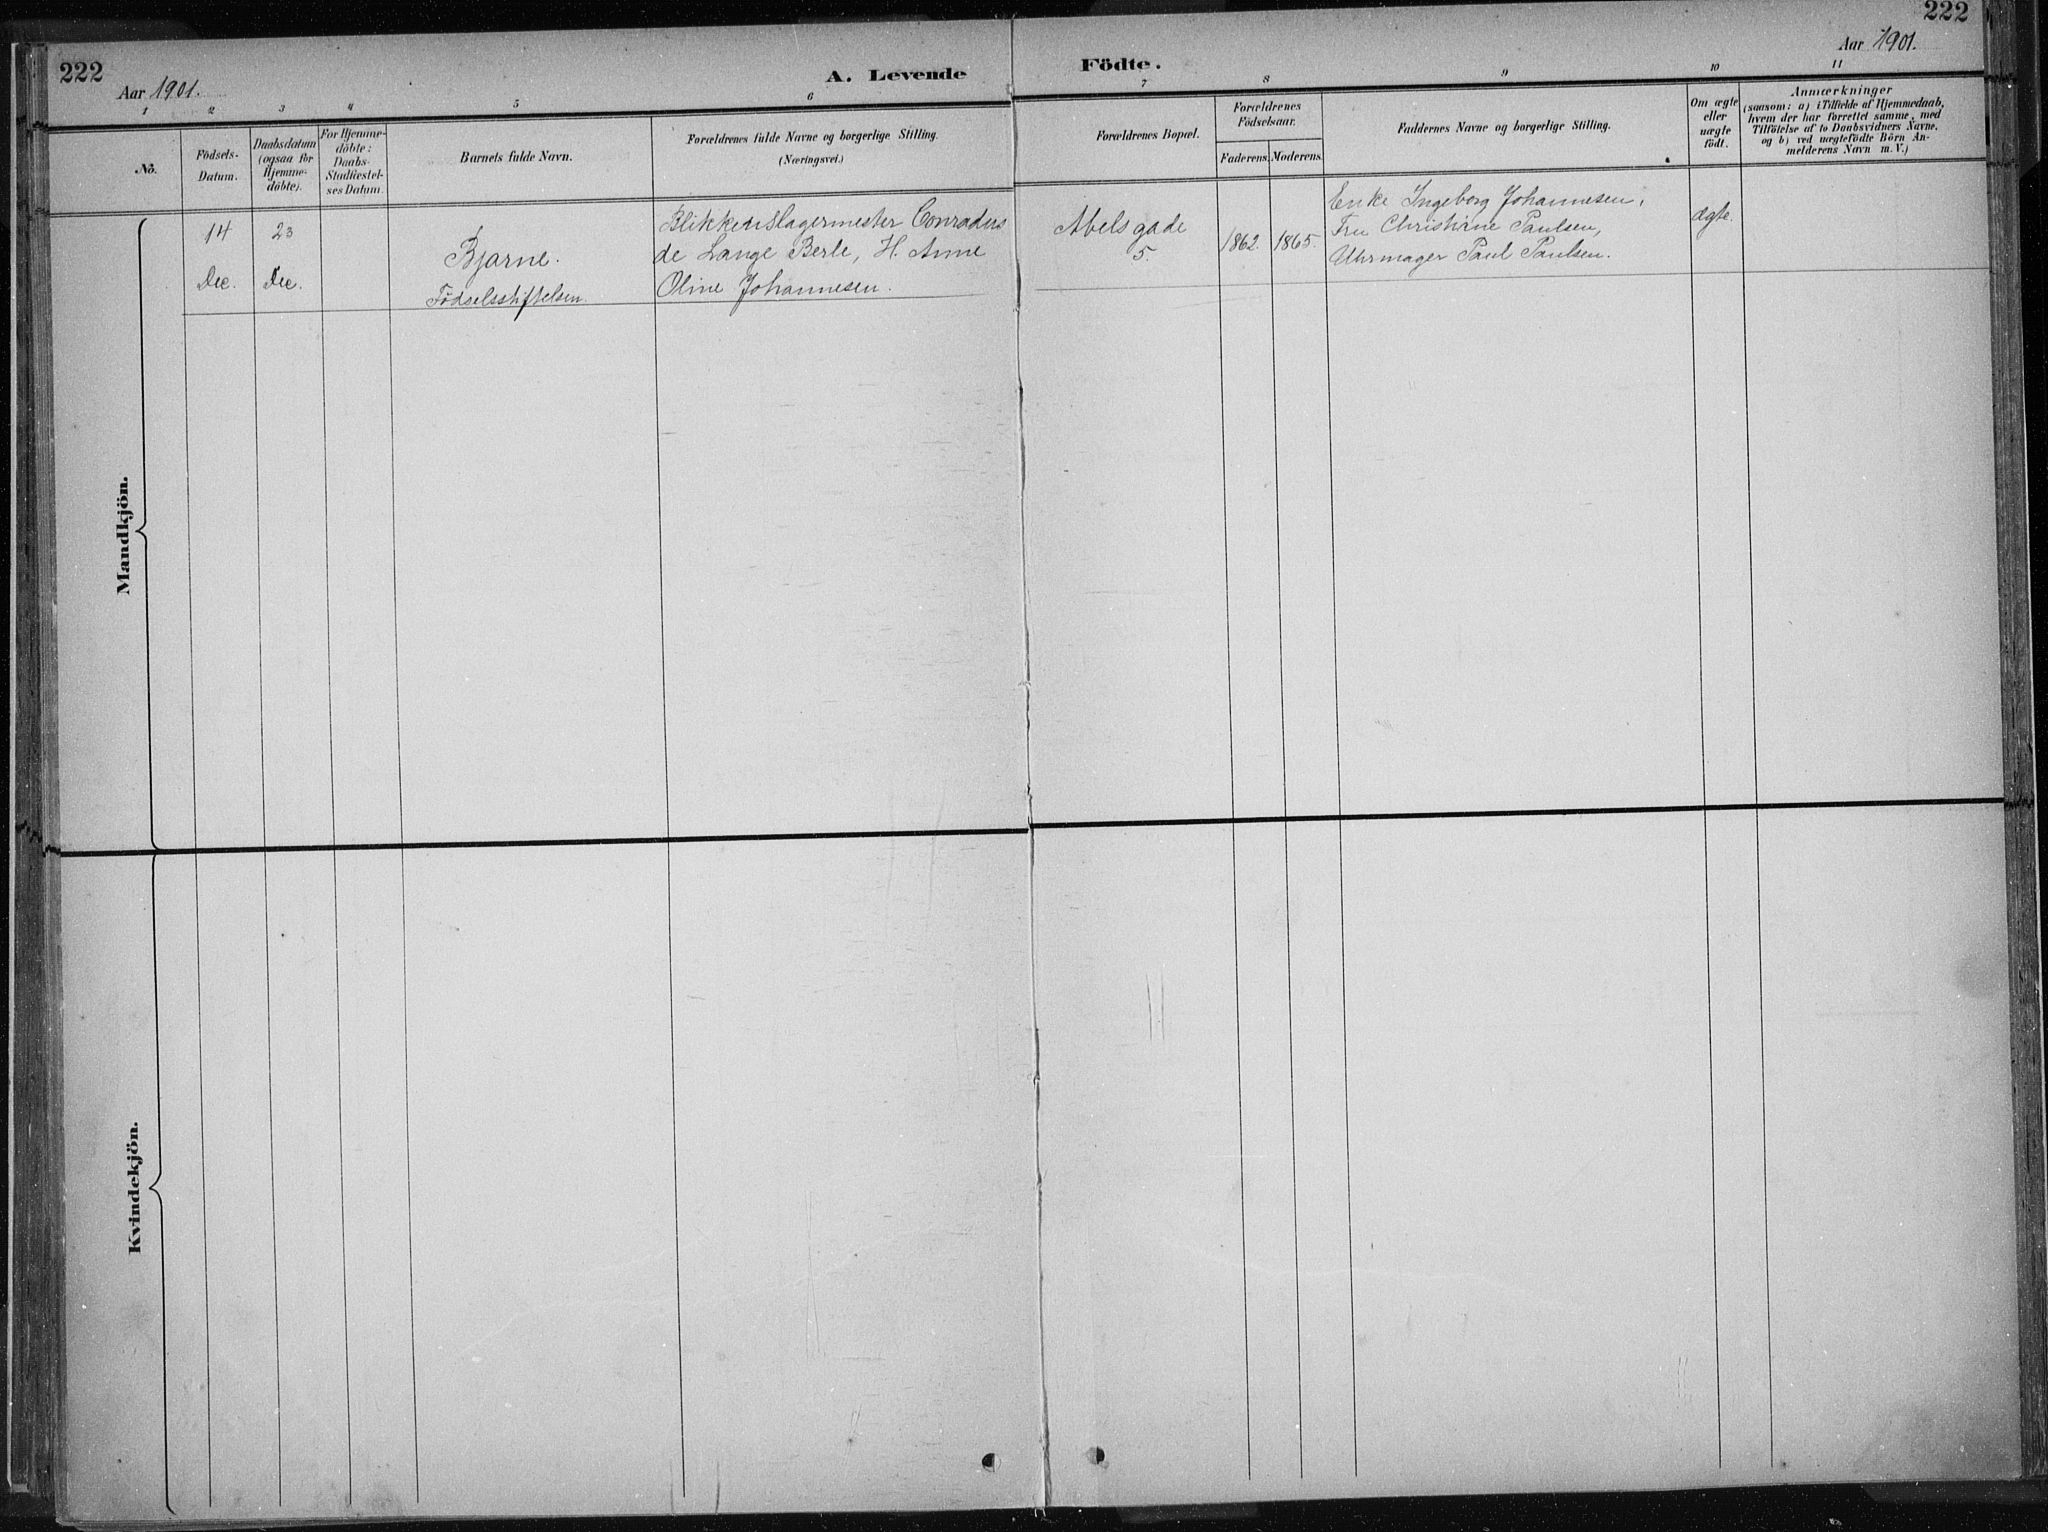 222
Aar 1901.
A. Levende
Födte.
Aar 1901.
222
1
2
3
4
5
6
7
8
9
10
11
No.
Födsels-
Datum.
Daabsdatum
(ogsaa for
Hjemme-
döbte).
For Hjemme-
döbte:
Daabs-
Stadfæstel-
ses Datum.
Barnets fulde Navn.
Forældrenes fulde Navne og borgerlige Stilling.
(Næringsvei.)
Forældrenes Bopæl.
Forældrenes
Födselsaar.
Faderens.
Moderens.
Faddernes Navne og borgerlige Stilling.
Om ægte
eller
uægte
födt.
Anmærkninger
(saasom: a) i Tilfælde af Hjemmedaab,
hvem der har forrettet samme, med
Tilföielse af to Daabsvidners Navne,
og b) ved uægtefödte Börn An-
melderens Navn m. V.)
Mandkjön.
14
Dec.
23
Dec.
Bjarne.
Födselsstiftelsen.
Blikkenslagermester Conradus
de Lange Berle, H. Anne
Oline Johannesen.
Abelsgade
5.
1862.
1865.
Enke Ingeborg Johannesen,
Fru Christiane Paulsen,
Uhrmager Paul Paulsen.
ægte.
Kvindekjön.